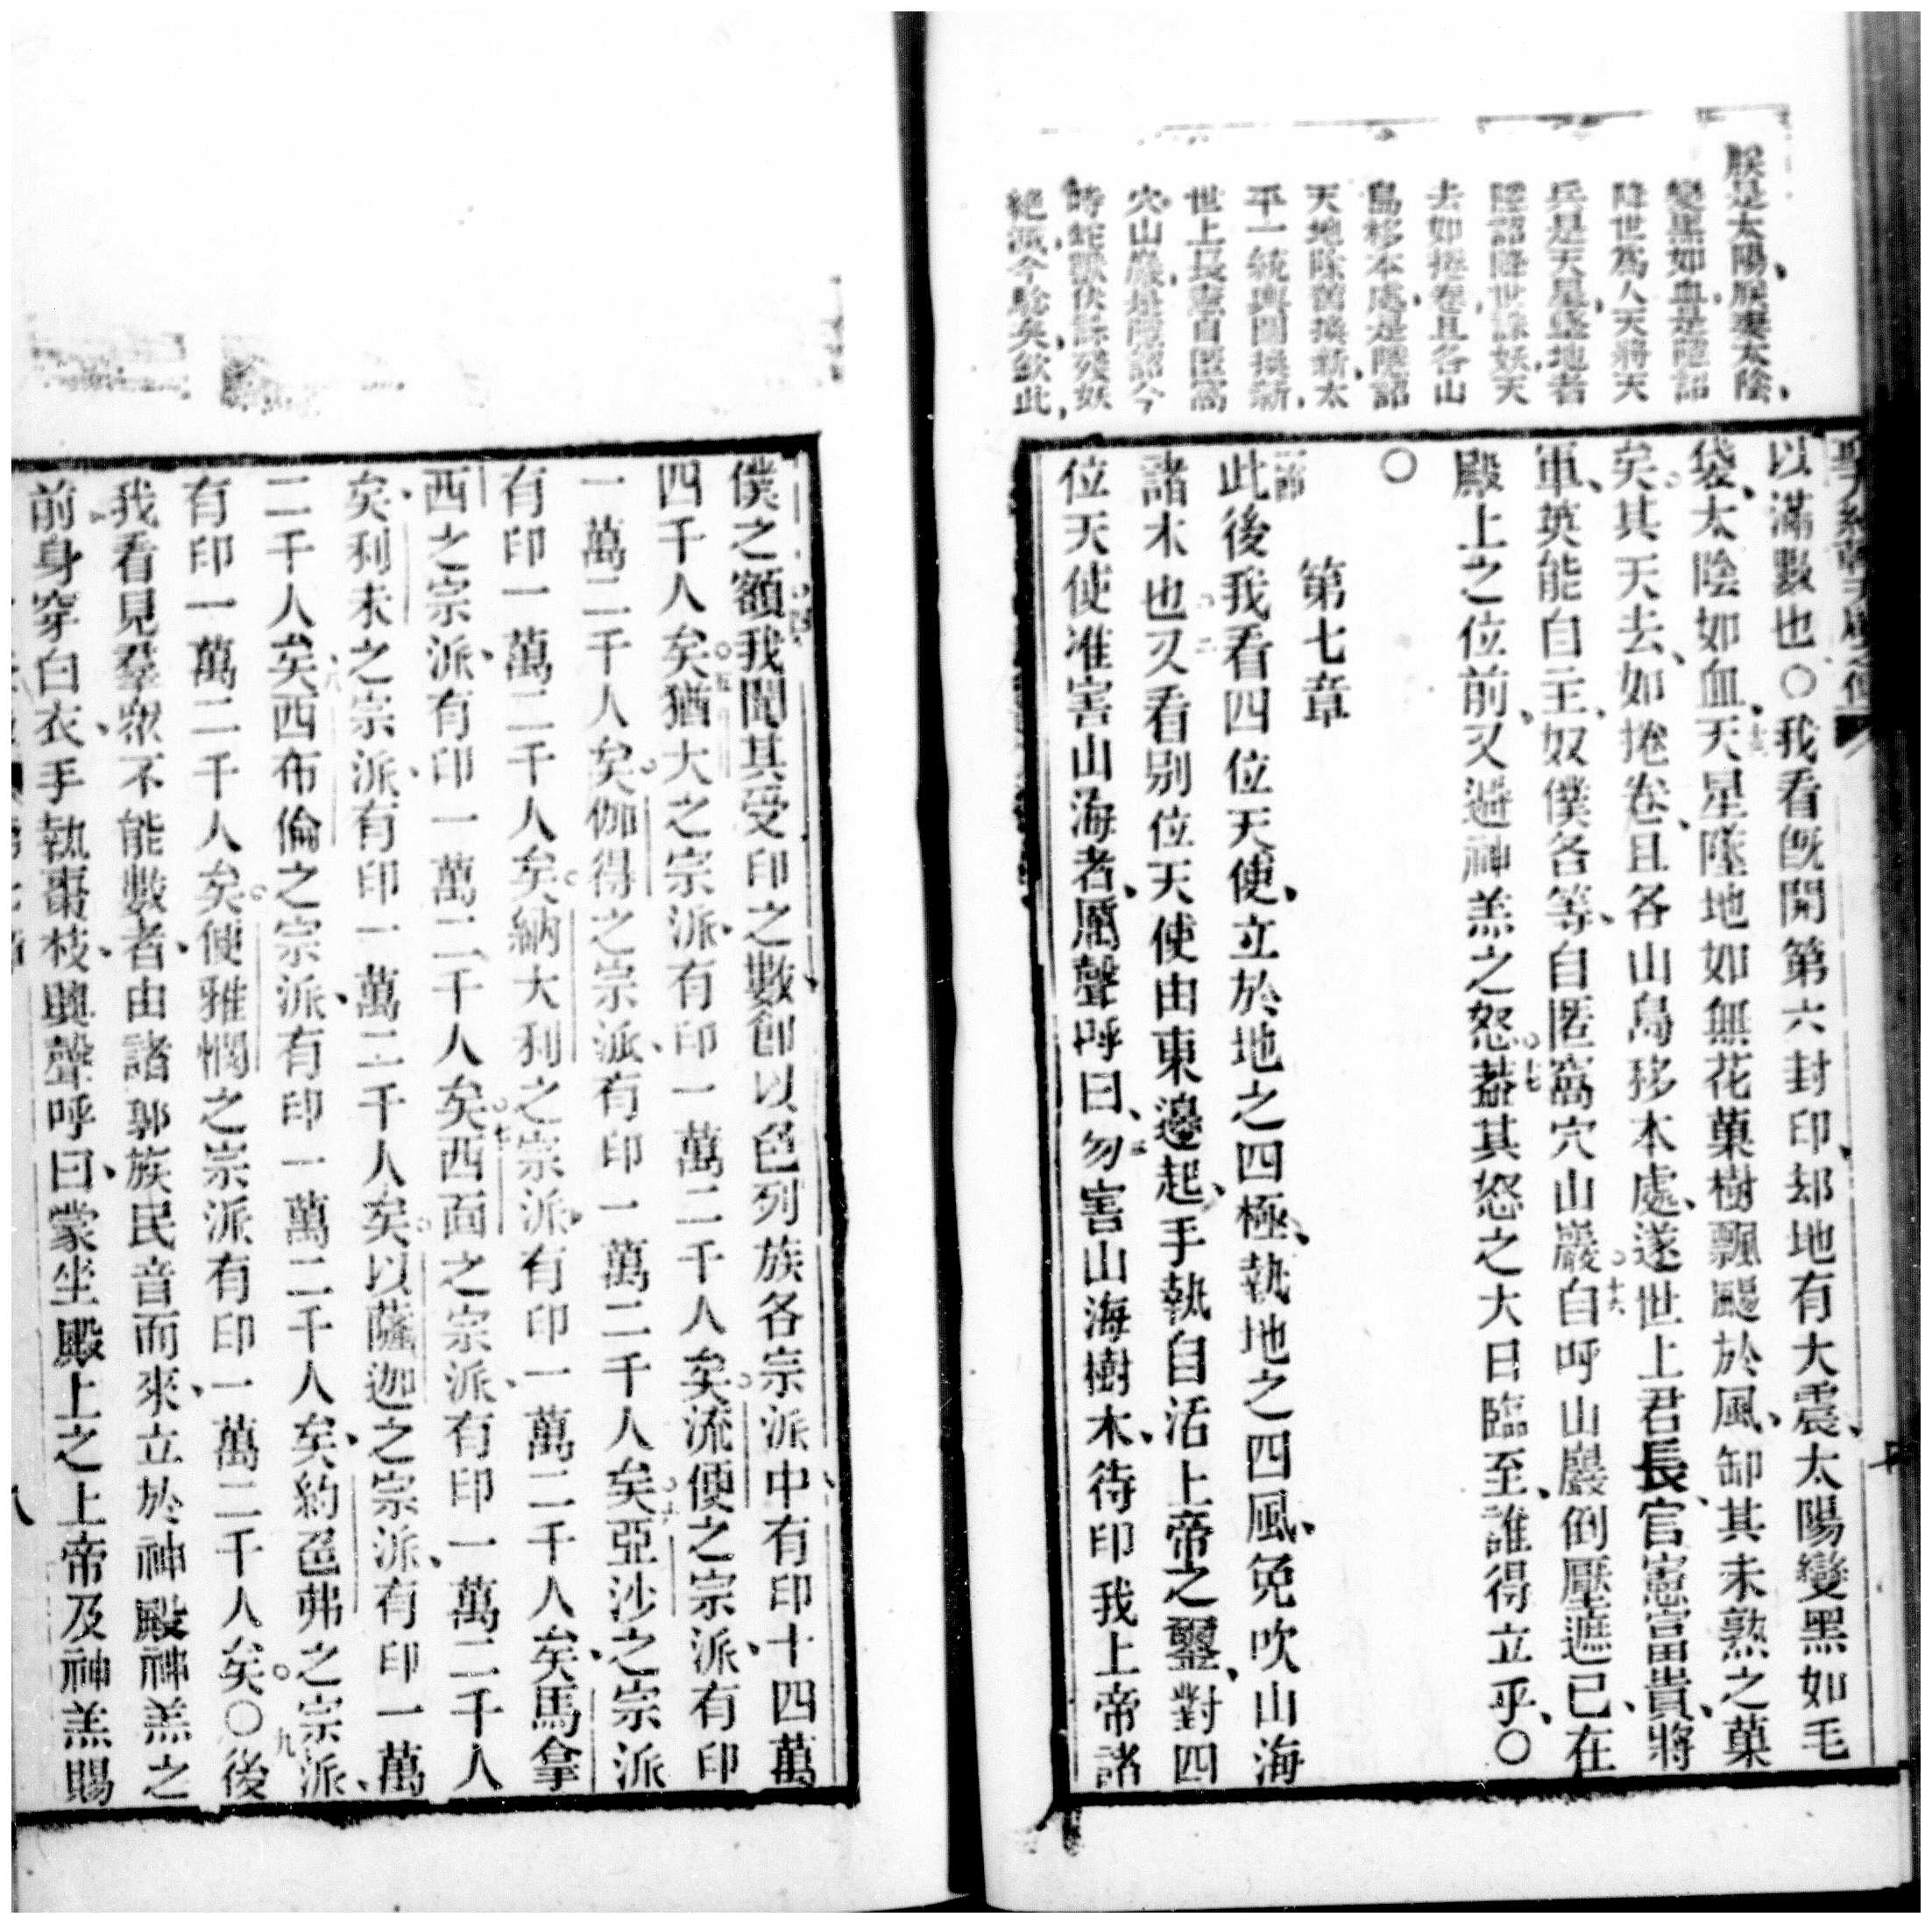 朕是太陽朕妻太陰
變黑如血是隱詔
降世為人天將天
兵是天星墜地者
隱詔降世誅妖天
去如捲卷且各山
島移本處是隱詔
天地除舊換新太
平一統輿圖換新
世上長憲自匿窩
穴山巖是隱詔今
時蛇獸伏誅殘妖
絕滅今驗矣欽此
以滿數也○我看旣開第六封印却地有大震太陽變黑如毛
袋太陰如血十三天星墜地如無花菓樹飄颺於風卸其未熟之菓
矣其天去如捲卷且各山島移本處遂世上君長官憲富貴將
軍英能自主奴僕各等自匿窩穴山巖十六自呼山巖倒壓遮已在
殿上之位前又避神羔之怒十七蓋其怒之大日臨至誰得立乎○
○
第七章
一節此後我看四位天使立於地之四極執地之四風免吹山海
諸木也二又看別位天使由東邊起手執自活上帝之璽對四
位天使准害山海者厲聲呼曰三勿害山海樹木待印我上帝諸
僕之額四我聞其受印之數卽以色列族各宗派中有印十四萬
四千人矣五猶大之宗派有印一萬二千人矣流便之宗派有印
一萬二千人矣伽得之宗派有印一萬二千人矣六亞沙之宗派
有印一萬二千人矣納大利之宗派有印一萬二千人矣馬拿
西之宗派有印一萬二千人矣七西面之宗派有印一萬二千人
矣利未之宗派有印一萬二千人矣以薩迦之宗派有印一萬
二千人矣八西布倫之宗派有印一萬二千人矣約色弗之宗派
有印一萬二千人矣便雅憫之宗派有印一萬二千人矣○九後
我看見羣衆不能數者由諸郭族民音而來立於神殿神羔之
前身穿白衣手執棗枝十興聲呼曰蒙坐殿上之上帝及神羔賜